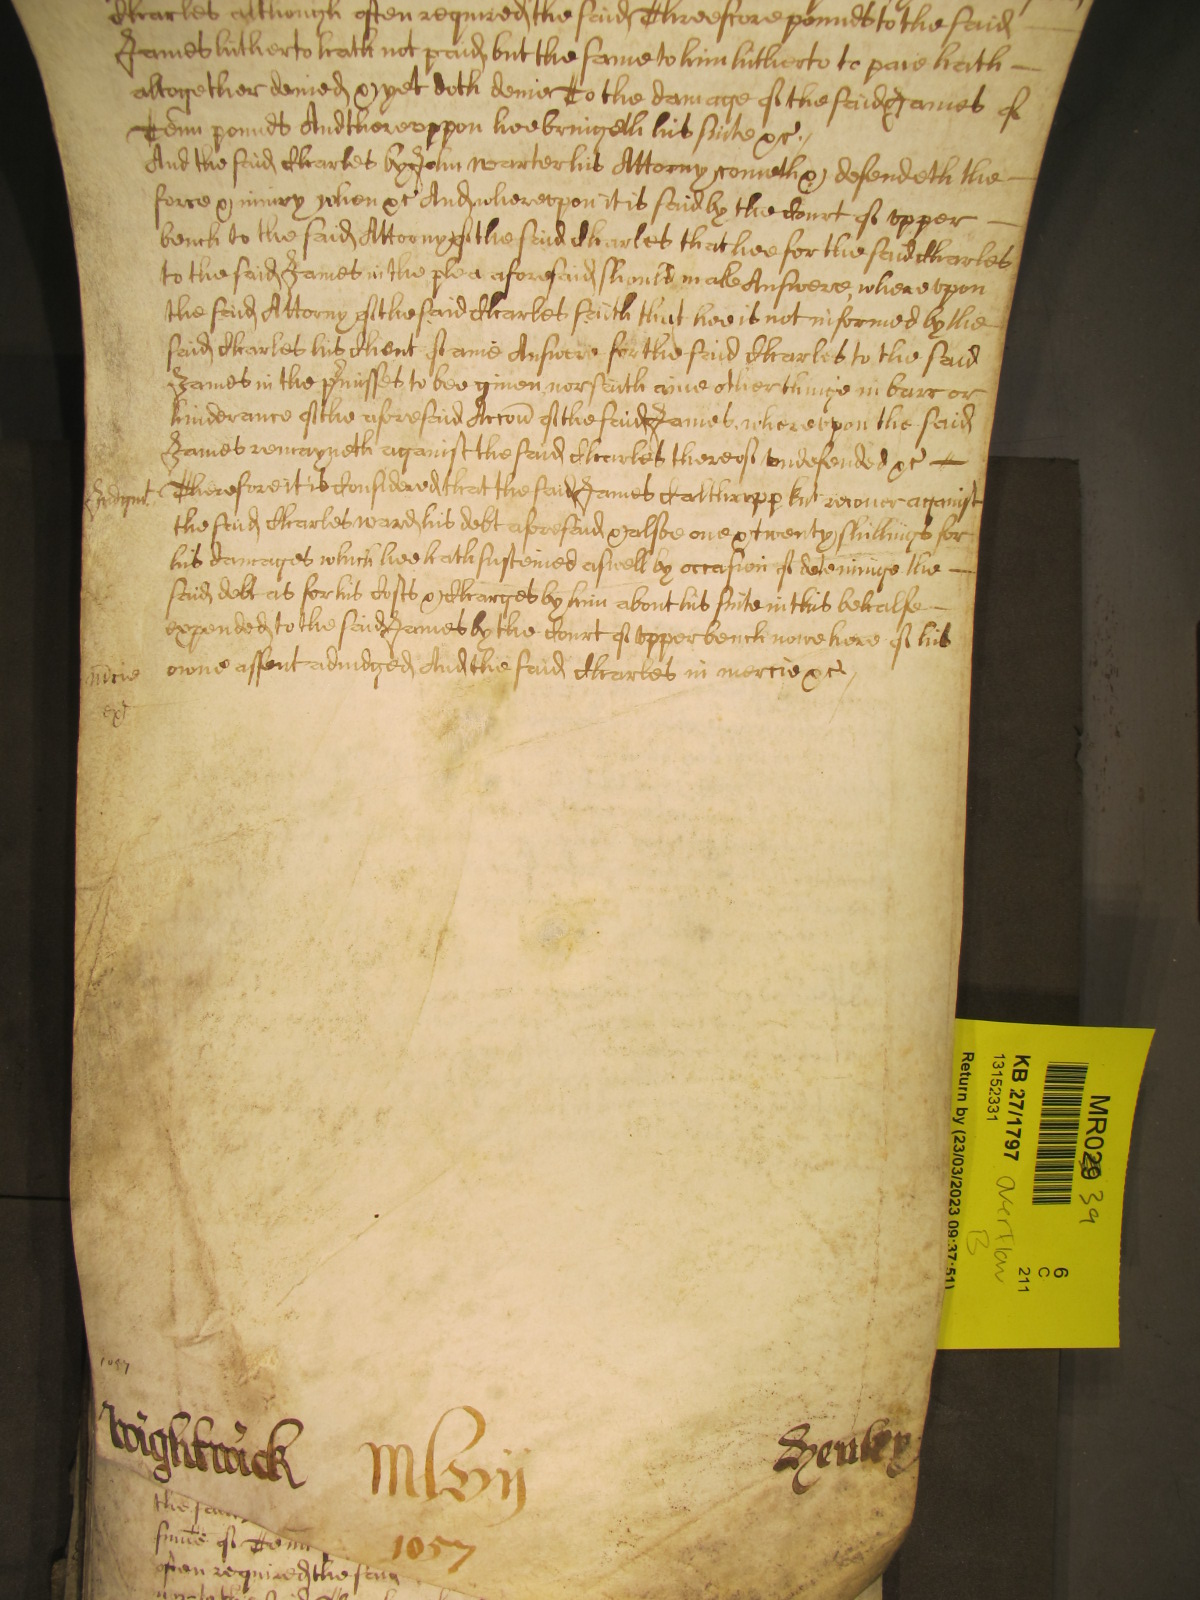 Charles although often required the said Threescore pounds to the said
James hitherto hath not paid, but the same to him hitherto to paie hath
altogether denied & yet doth denie To the damage of the said James of
Tenn pounds And thereuppon hee bringeth his suite &c.
And the said Charles by John warter his Attorny cometh & defendeth the
force & iniury when &c And whereupon it is said by the Court of upper
bench to the said Attorny of the said Charles that hee for the said Charles
to the said James in the plea aforesaid should make Answere, whereupon
the said Attorny of the said Charles saith that hee is not informed by the
said Charles his Client of anie Answere for the said Charles to the said
James in the pmisses to bee given, nor saith anie other thinge in barr or
hinderance of the aforesaid Accon of the said James, whereupon the said
James remayneth against the said Charles thereof undefended &c
Judgmt. Therefore it is Considered that the said James Calthropp his recover against
the said Charles ward his debt aforesaid & alsoe one & twenty shillings for
his damages which hee hath susteined aswell by occasion of deteininge the
said debt as for his Costs & Charges by him about his suite in this behalfe
expended to the said James by the Court of upper bench nowe here of his
mcie owne assent adiudged, And the said Charles in mercie &c
ex
1057
Wightwick Mlvij Henley
1057
the same
sume of Tenn
often required the said
MR029 39
KB 27/1797 overflow B
13152331
6
C
211
Return by (23/03/2023 09:37:51)